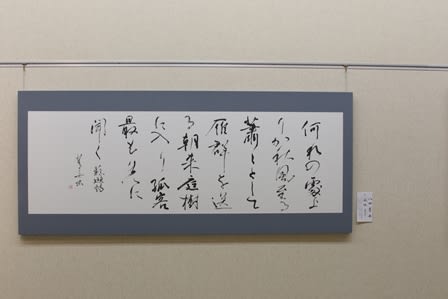 何れの處よ
りか秋風至る
蕭々として
雁群を送
る朝来庭樹
に入り孤客
最も先に
聞く